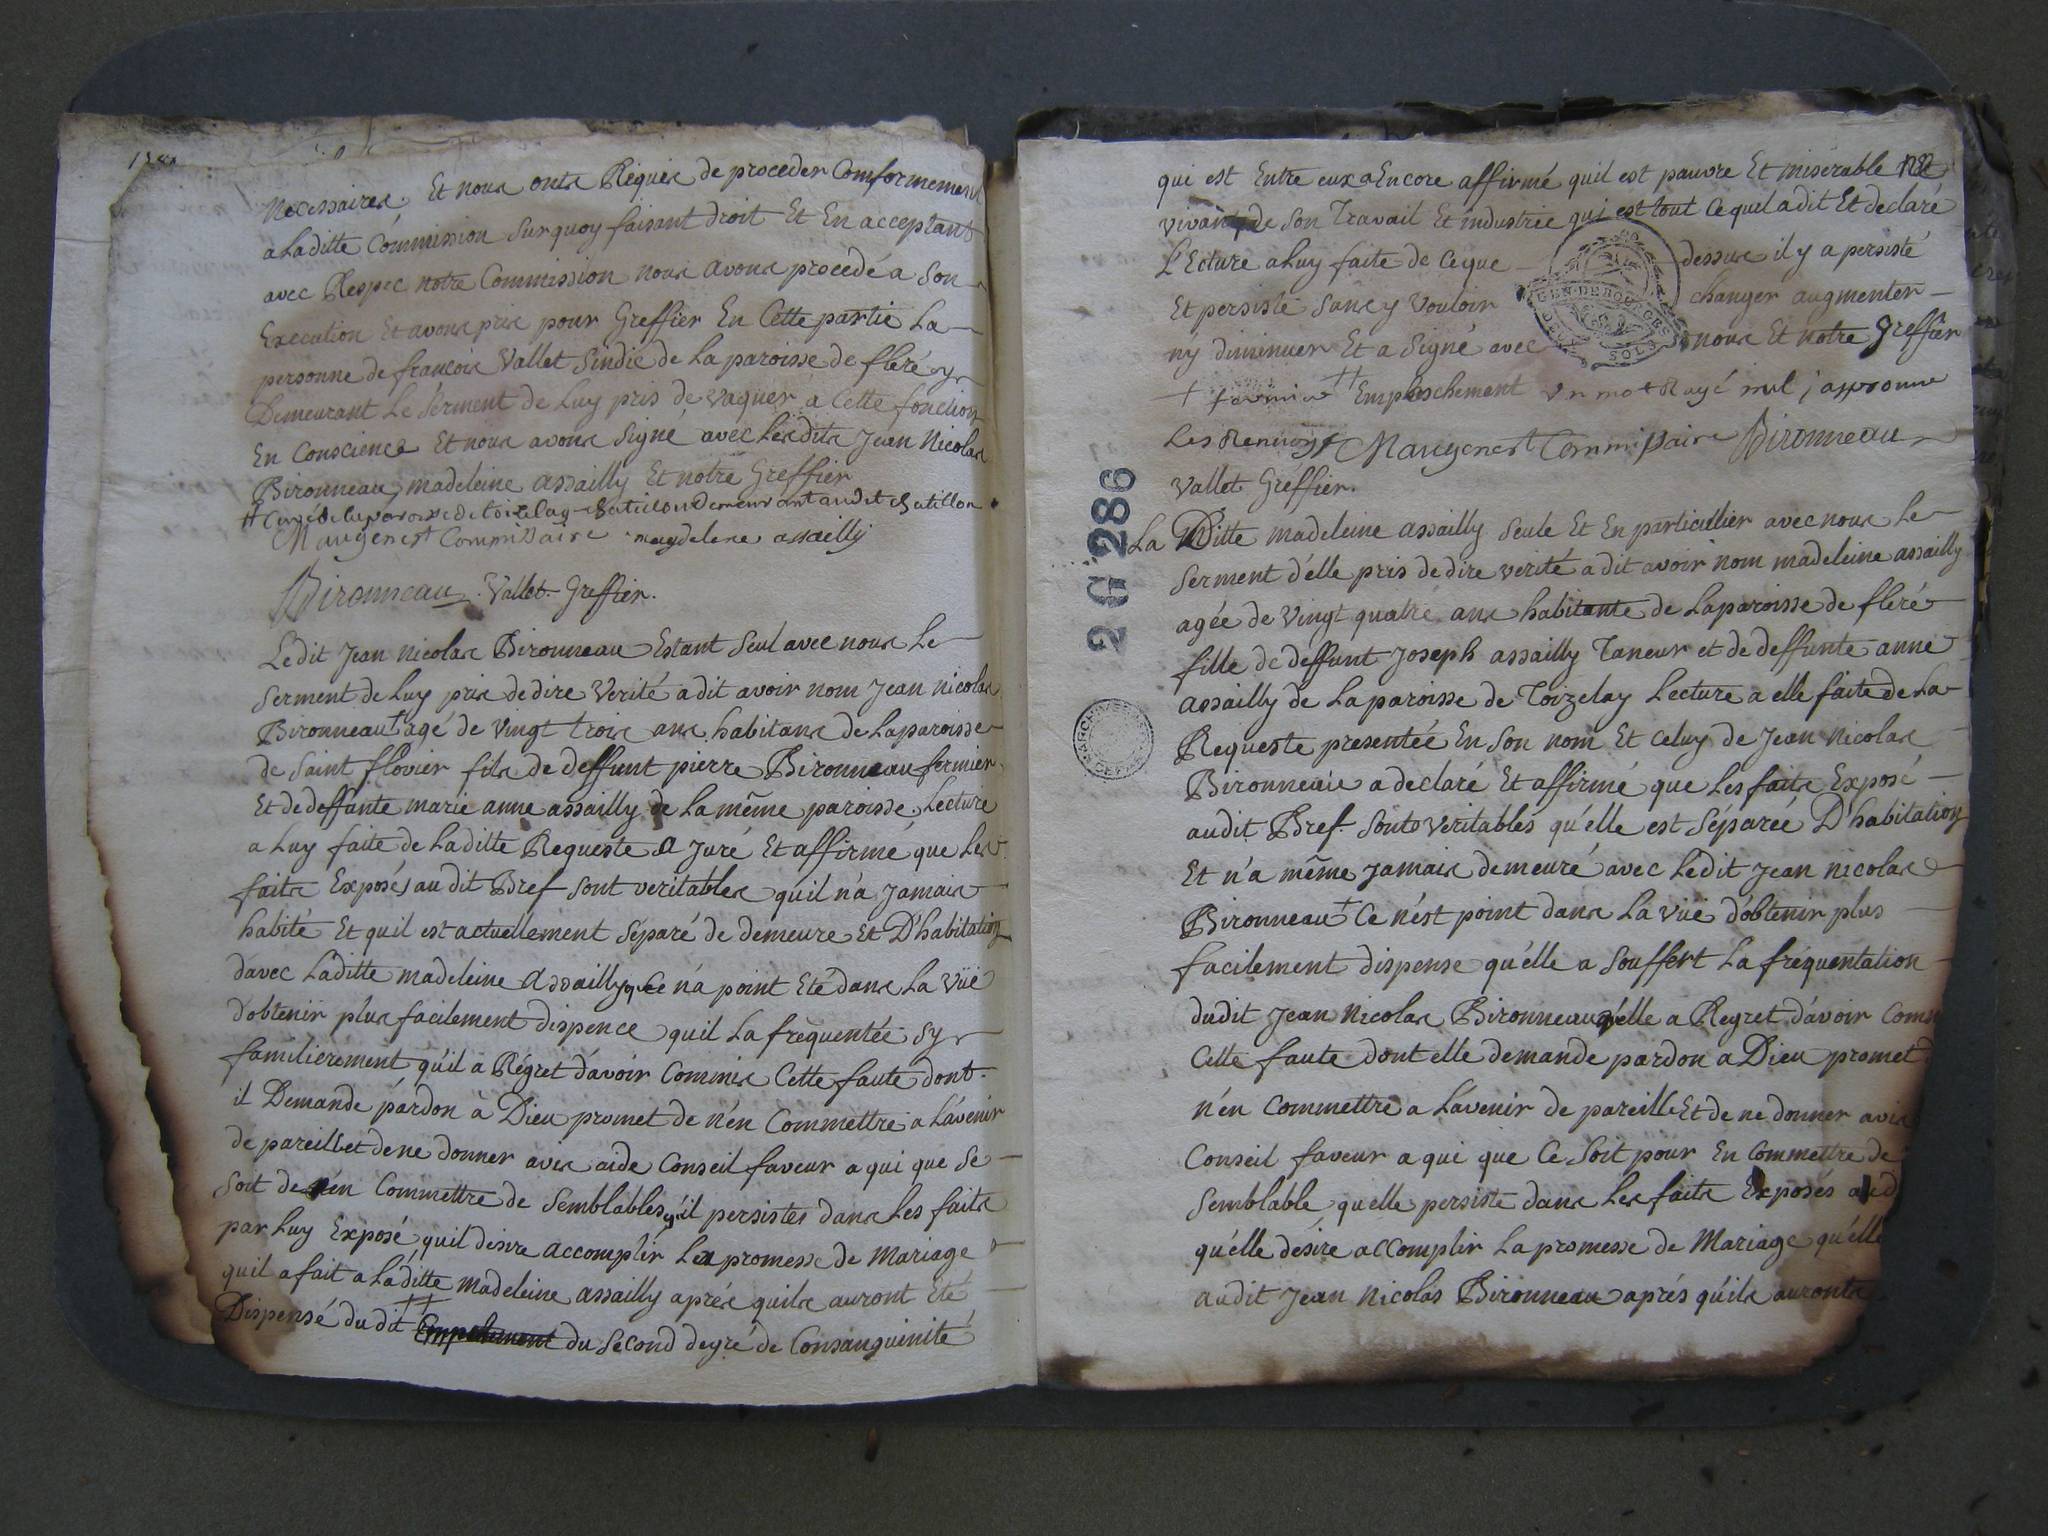 necessaires. Et nous onts Requis de proceder Comformement
a Laditte Commission Surquoy faisant droit Et En acceptant
avec Respec notre Commission nous avons procedé a Son
Execution Et avons pris pour Greffier En Cette partie La
personne de francois Vallet Sindic de La paroisse de fleré y
Demeurant Le Serment de Luy pris de vaquer a Cette fonction
En Conscience Et nous avons Signé avec Lesdits Jean Nicolas
Bironneau, madeleine assailly Et notre Greffier
Maugenest Commissaire magdelene assailly
Bironneau. Vallet. Greffier.
Ledit Jean nicolas Bironneau Estant Seul avec nous Le
Serment de Luy pris de dire Verité a dit avoir nom Jean nicolas
Bironneau + agé de vingt trois ans habitans de Laparoisse
de Saint flovier fils de deffunt pierre Bironneau fermier
Et de deffunte marie anne assailly de La même paroisse, Lecture
a Luy faite de Laditte Requeste a Juré Et affirmé que Les
faits Exposés au dit Bref sont veritables qu'il n'a Jamais
habité Et quil est actuellement Séparé de demeure Et D'habitation
davec Laditte madeleine Assailly que n'a point Eté dans La Vüe
d'obtenir plus facilement dispence quil La frequentée sy
familierement qu'il a Régret d'avoir Commis Cette faute dont
il Demande pardon à Dieu promet de n'en Commettre a L'avenir
de pareill et de ne donner avis aide Conseil faveur a qui que Se
Soit de n'en Commettre de Semblables qu'il persistes dans Les faits
par Luy Exposé quil desire accomplir La promesse de Mariage
quil a fait a Laditte madeleine assailly aprés quils auront Eté
Dispensé du dit ++ Empechement du Second degré de Consanguinité
qui est Entre eux a Encore affirmé quil est pauvre Et misérable
vivant de Son Travail Et industrie qui est tout Ce quel a dit Et declaré
L'Ecture a Luy faite de Ceque dessus il y a persisté
Et persiste Sans y Vouloir changer augmenter
ny diminuer Et a Signé avec nous Et notre Greffier
+ fermier ++ Empeschement Un mot Rayé nul j'approuve
Les Renvoys Maugenest Commissaire Bironneau
Vallet Greffier.
GEN. DE BOURGES
DEUX SOLS
2 G 286
La Ditte madeleine assailly Seule Et En particullier avec nous Le
Serment d'elle pris de dire verité a dit avoir nom madeleine assailly
agée de Vingt quatre ans habitante de Laparoisse de fleré
fille de deffunt Joseph assailly Taneur et de deffunte anne
assailly de La paroisse de Toizelay Lecture a elle faite de La
Requeste presentée En Son nom Et Celuy de Jean Nicolas
Bironneau a declaré Et affirmé que Les faits Exposé
audit Bref. Sonts veritables qu'elle est Séparée D'habitation
Et n'a même Jamais demeuré avec Ledit Jean nicolas
Bironneau + Ce n'est point dans La vüe d'obtenir plus
facilement dispense qu'elle a Souffert La fréquentation
dudit Jean Nicolas Bironneau qu'elle a Regret d'avoir Com
Cette faute dont elle demande pardon a Dieu promet
n'en Commettre a L'avenir de pareill Et de ne donner avis
Conseil faveur a qui que Ce Soit pour En Commettre de
Semblable quelle persiste dans Les faits Exposés
qu'elle désire accomplir La promesse de Mariage qu'elle
audit Jean Nicolas Bironneau aprés qu'ils auronts